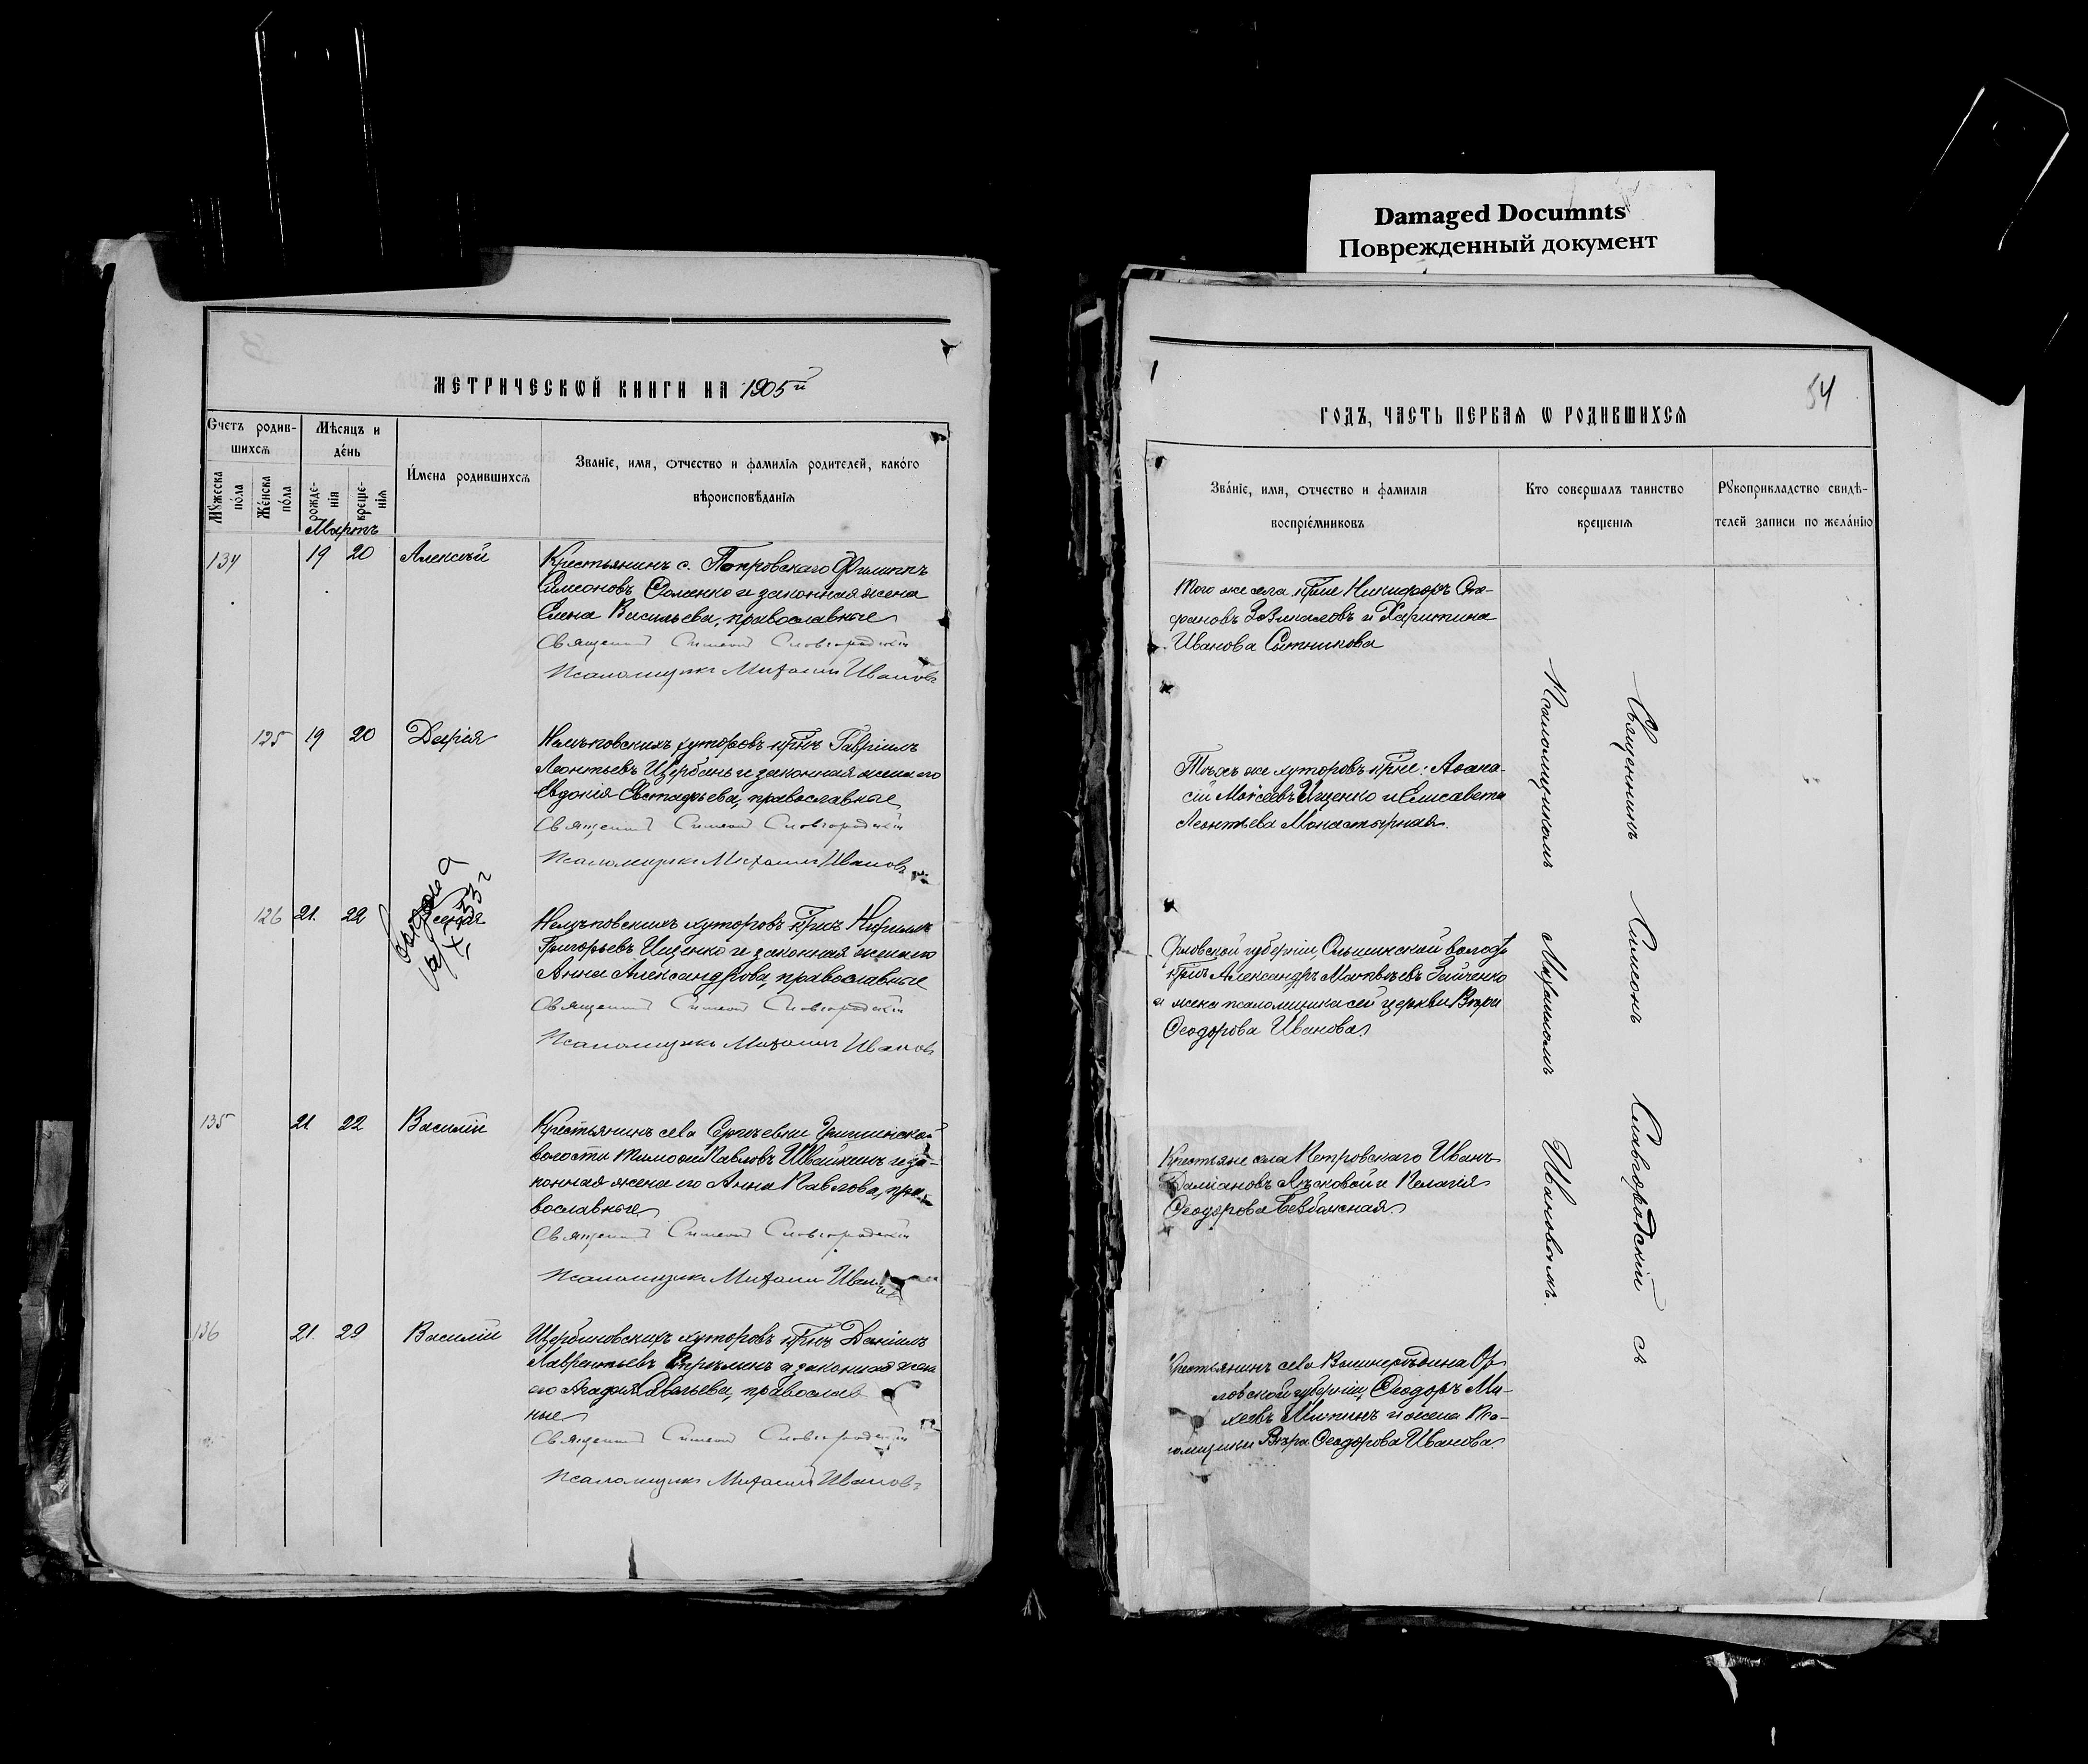 Damaged Documnts
Поврежденный документ
МЕТРИЧЕСКѠЙ КНИГИ НА 1905 й
Счетъ родив-
шихсѧ
Мѣсяцъ и
де́нь
И́мена родившихсѧ
Званіе, имя, ѻтчество и фамиліѧ родителей, како́го
вѣроисповѣ́данія
Мꙋжеска
по́ла
Же́нска
по́ла
рожде-
нія
креще-
нія
Мартъ
134 19 20 Алексѣй
Крестьянинъ с. Петровскаго Филиппъ
Симеоновъ Сюменко и законная жена
Елена Васильева, православные
Священникъ Симеонъ Славгородскій
Псаломщикъ Михаилъ Ивановъ
125 19 20 Дарія
хуторовъ крнъ Гавріилъ
Леонтьевъ Щербань и законная жена его
Евдокія Евстафьева, православные
Священникъ Симеонъ Славгородскій
Псаломщикъ Михаилъ Ивановъ
126 21. 22
хуторовъ крнъ Кириллъ
Григорьевъ Ищенко и законная жена его
Анна Александрова, православные
Священникъ Симеонъ Славгородскій
Псаломщикъ Михаилъ Ивановъ
135 21 22 Василій
Крестьянинъ села Сергѣевки Гришинской
волости Тимофей Павловъ Швайкинъ и за-
конная жена его Анна Павлова, пра-
вославные
Священникъ Симеонъ Славгородскій
Псаломщикъ Михаилъ Ивановъ
136 21. 29 Василій
Щербиновскихъ хуторовъ крнъ Даніилъ
Лаврентьевъ и законная жена
его Агафія Савельева, православ
ные
Священникъ Симеонъ Славгородскій
Псаломщикъ Михаилъ Ивановъ
54
ГОДЪ, ЧАСТЬ ПЕРВАЯ Ѡ РОДИВШИХСѦ
Зва́ніе, имя, ѻтчество и фамилія
воспріе́мниковъ
Кто совершалъ таинство
крещенія
Рꙋкоприкладство свидѣ-
телей записи по жела́нію
Того же села крне Никифоръ Сте-
фановъ и Харитина
Иванова Сытникова
Тѣхъ же хуторовъ крне: Аѳана-
сій Моѵсеевъ Ищенко и Елисавета
Леонтьева Монастырная.
Орловской губерніи, Ольшинской волости
крнъ Александръ Матвѣевъ Зайченко
и жена псаломщика сей церкви Вѣра
Ѳеодорова Иванова
Крестьяне села Петровскаго Иванъ
Даміановъ Лѣсковой и Пелагія
Ѳеодорова
Крестьянинъ села Ор-
ловской губерніи, Ѳеодоръ Ми-
хеевъ Митинъ и жена Пса-
ломщика Вѣра Ѳеодорова Иванова
Священникъ Симеонъ Славгородскій съ
Псаломщикомъ Михаиломъ Ивановымъ.